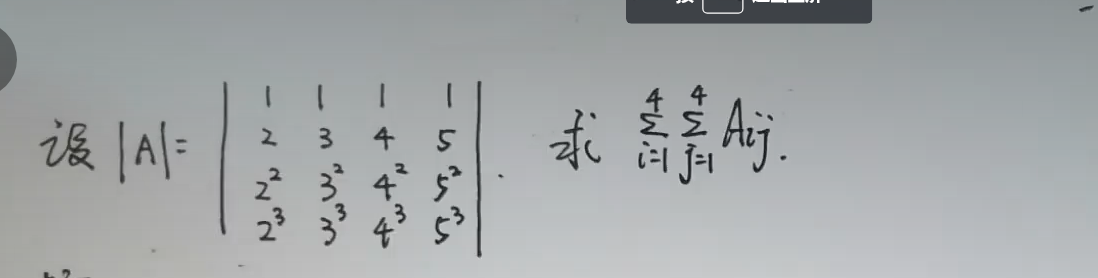 设 |A| = | 1 1 1 1 |
| 2 3 4 5 |
| 2² 3² 4² 5² |
| 2³ 3³ 4³ 5³ | . 求 ∑_{i=1}^{4} ∑_{j=1}^{4} Aij.